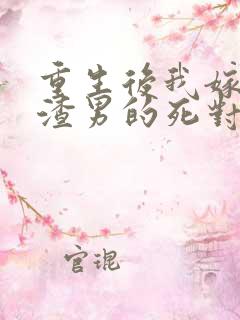 重生後我嫁
渣男的死對
官琨